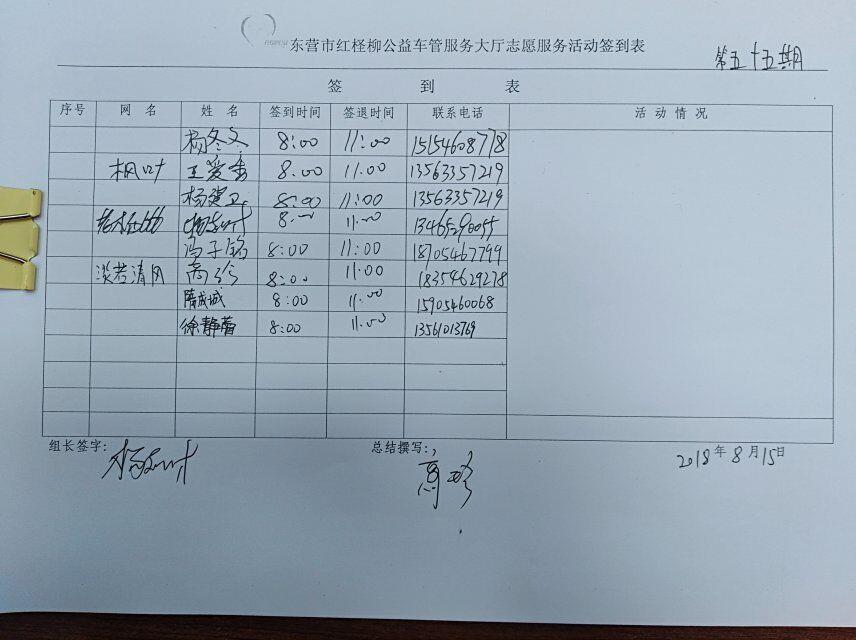 东营市红柽柳公益车管服务大厅志愿服务活动签到表
第五十五期
签 到 表
序号 网 名 姓 名 签到时间 签退时间 联系电话 活 动 情 况
杨冬文 8:00 11:00 15154608778
枫叶 王爱香 8.00 11.00 13563357219
杨建卫 8:00 11:00 13563357219
8:00 11:00 13465290055
冯子铭 8:00 11:00 18705467799
淡若清风 高珍 8:00 11:00 18354629278
隋成城 8:00 11:00 15905460068
徐静蕾 8:00 11:00 13561013769
组长签字: 总结撰写: 高珍 2018年8月15日